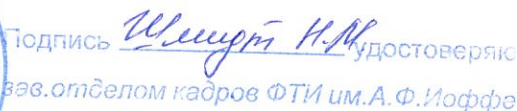 Подпись Шмидт Н.М удостоверяю
зав.отделом кадров ФТИ им.А.Ф.Иоффе